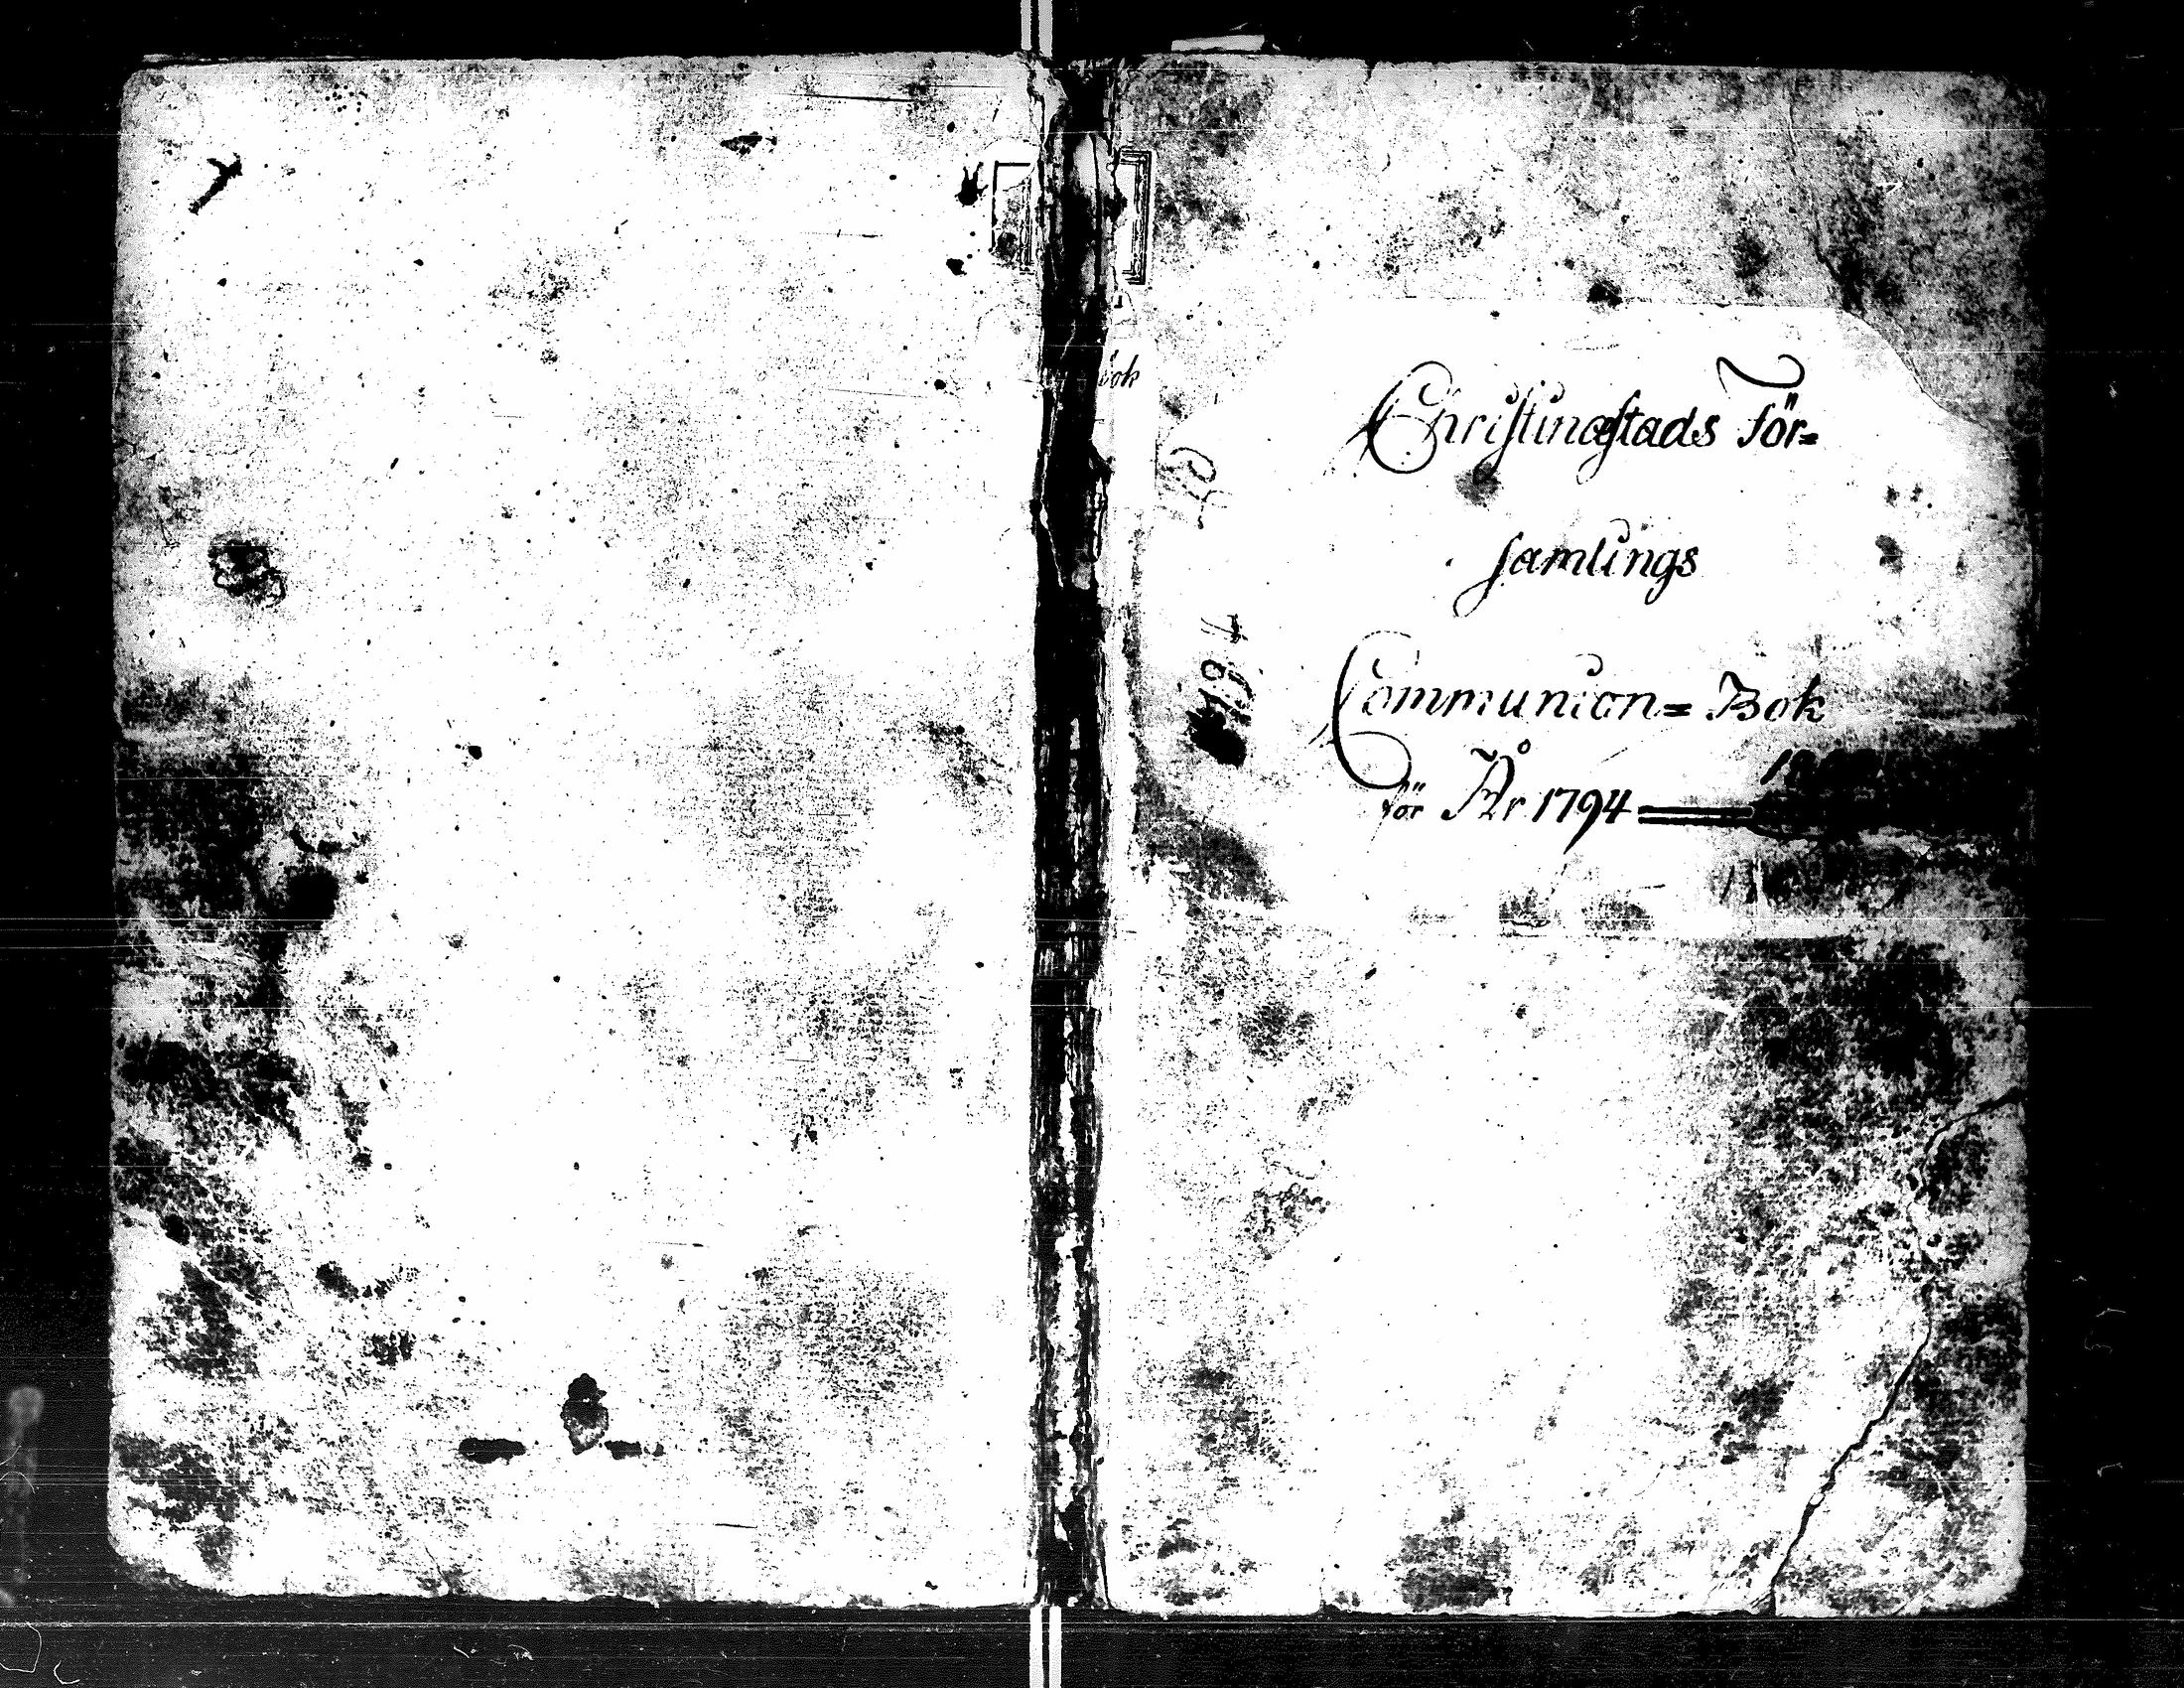 Christinæstads För=
samlings
Communion= Bok
för År 1794
ok